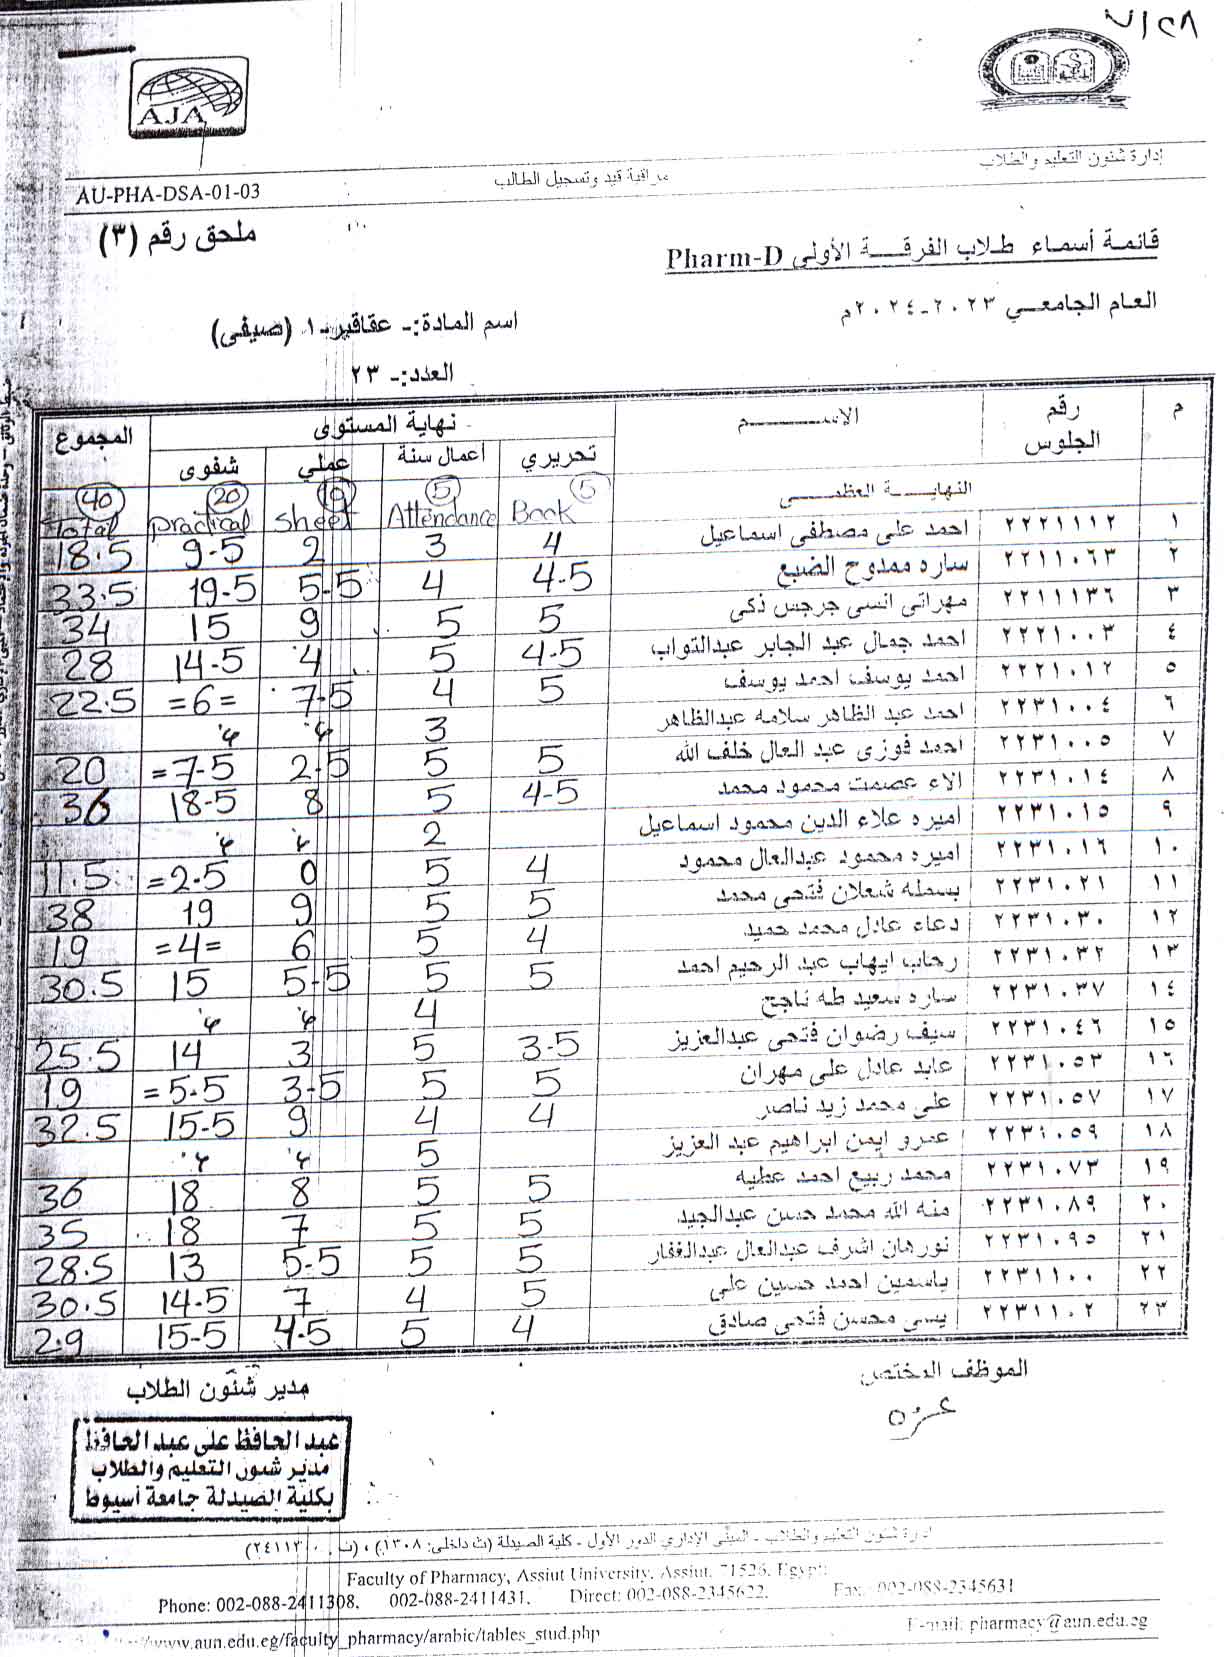 ٧/٢٨
AJA
إدارة شئون التعليم والطلاب
مراقبة قيد وتسجيل الطالب
AU-PHA-DSA-01-03
ملحق رقم (٣)
قائمة أسماء طلاب الفرقة الأولى Pharm-D
العام الجامعي ٢٠٢٣-٢٠٢٤م
اسم المادة:- عقاقير-١ (صيفى)
العدد:- ٢٣
م رقم الجلوس الاسم نهاية المستوى المجموع
تحريري اعمال سنة عملي شفوى
النهاية العظمى 5 5 10 20 40
Book Attendance Sheet Practical Total
١ ٢٢٢١١١٢ احمد على مصطفى اسماعيل 4 3 2 9.5 18.5
٢ ٢٢١١٠٦٣ ساره ممدوح الضبع 4.5 4 5.5 19.5 33.5
٣ ٢٢١١١٣٦ مهراتى انسى جرجس ذكى 5 5 9 15 34
٤ ٢٢٢١٠٠٣ احمد جمال عبد الجابر عبدالتواب 4.5 5 4 14.5 28
٥ ٢٢٢١٠١٢ احمد يوسف احمد يوسف 5 4 7.5 =6= 22.5
٦ ٢٢٣١٠٠٤ احمد عبد الظاهر سلامه عبدالظاهر 3 غ غ
٧ ٢٢٣١٠٠٥ احمد فوزى عبد العال خلف الله 5 5 2.5 =7.5 20
٨ ٢٢٣١٠١٤ الاء عصمت محمود محمد 4.5 5 8 18.5 36
٩ ٢٢٣١٠١٥ اميره علاء الدين محمود اسماعيل 2 غ غ
١٠ ٢٢٣١٠١٦ اميره محمود عبدالعال محمود 4 5 0 =2.5 11.5
١١ ٢٢٣١٠٢١ بسمله شعلان فتحى محمد 5 5 9 19 38
١٢ ٢٢٣١٠٣٠ دعاء عادل محمد حميد 4 5 6 =4= 19
١٣ ٢٢٣١٠٣٢ رحاب ايهاب عبد الرحيم احمد 5 5 5.5 15 30.5
١٤ ٢٢٣١٠٣٧ ساره سعيد طه ناجح 4 غ غ
١٥ ٢٢٣١٠٤٦ سيف رضوان فتحى عبدالعزيز 3.5 5 3 14 25.5
١٦ ٢٢٣١٠٥٣ عابد عادل على مهران 5 5 3.5 =5.5 19
١٧ ٢٢٣١٠٥٧ على محمد زيد ناصر 4 4 9 15.5 32.5
١٨ ٢٢٣١٠٥٩ عمرو ايمن ابراهيم عبد العزيز 5 غ غ
١٩ ٢٢٣١٠٧٣ محمد ربيع احمد عطيه 5 5 8 18 36
٢٠ ٢٢٣١٠٨٩ منه الله محمد حسن عبدالجيد 5 5 7 18 35
٢١ ٢٢٣١٠٩٥ نورهان اشرف عبدالعال عبدالغفار 5 5 5.5 13 28.5
٢٢ ٢٢٣١١٠٠ ياسمين احمد حسين على 5 4 7 14.5 30.5
٢٣ ٢٢٣١١٠٢ يسى محسن فتحى صادق 4 5 4.5 15.5 29
الموظف المختص
مدير شئون الطلاب
عزه
عبد الحافظ على عبد الحافظ
مدير شئون التعليم والطلاب
بكلية الصيدلة جامعة أسيوط
إدارة شئون التعليم والطلاب - المبنى الإداري الدور الأول - كلية الصيدلة (ت داخلى: ١٣٠٨)
Faculty of Pharmacy, Assiut University, Assiut, 71526, Egypt:
Phone: 002-088-2411308, 002-088-2411431, Direct: 002-088-2345622, Fax: 002-088-2345631
www.aun.edu.eg/faculty_pharmacy/arabic/tables_stud.php E-mail: pharmacy@aun.edu.eg